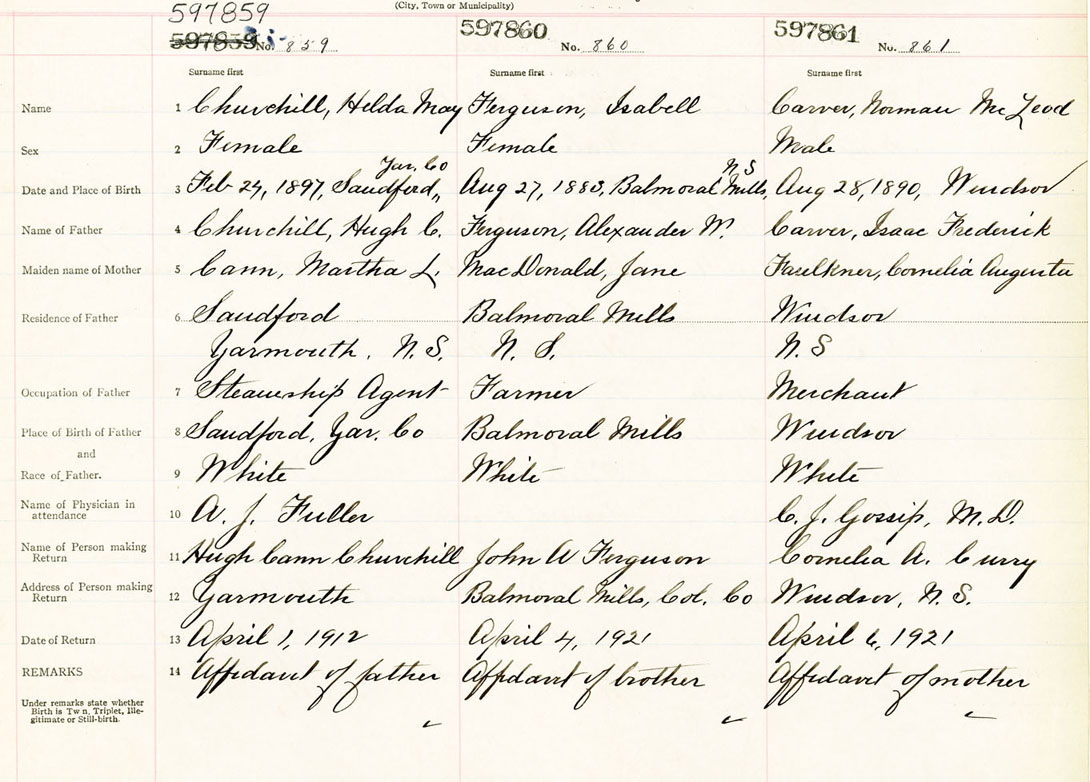 (City, Town or Municipality)
597859
597859 No. 859
597860 No. 860
597861 No. 861
Surname first Surname first Surname first
Name 1 Churchill, Helda May Ferguson, Isabell Carver, Norman McLeod
Sex 2 Female Female Male
Yar. Co N S
Date and Place of Birth 3 Feb 24, 1897, Sandford, Aug 27, 1883, Balmoral Mills, Aug 28, 1890, Windsor
Name of Father 4 Churchill, Hugh C. Ferguson, Alexander W. Carver, Isaac Frederick
Maiden name of Mother 5 Cann, Martha L. MacDonald, Jane Faulkner, Cornelia Augusta
Residence of Father 6 Sandford Balmoral Mills Windsor
Yarmouth, N. S. N. S. N. S
Occupation of Father 7 Steamship Agent Farmer Merchant
Place of Birth of Father 8 Sandford, Yar. Co Balmoral Mills Windsor
and
Race of Father. 9 White White White
Name of Physician in
attendance 10 A. J. Fuller C. J. Gossip, M. D.
Name of Person making
Return 11 Hugh Cann Churchill John A Ferguson Cornelia A. Curry
Address of Person making
Return 12 Yarmouth Balmoral Mills, Col. Co Windsor, N. S.
Date of Return 13 April 1, 1912 April 4, 1921 April 6, 1921
REMARKS 14 Affidavit of father Affidavit of brother Affidavit of mother
Under remarks state whether
Birth is Tw n, Triplet, Ille-
gitimate or Still-birth.